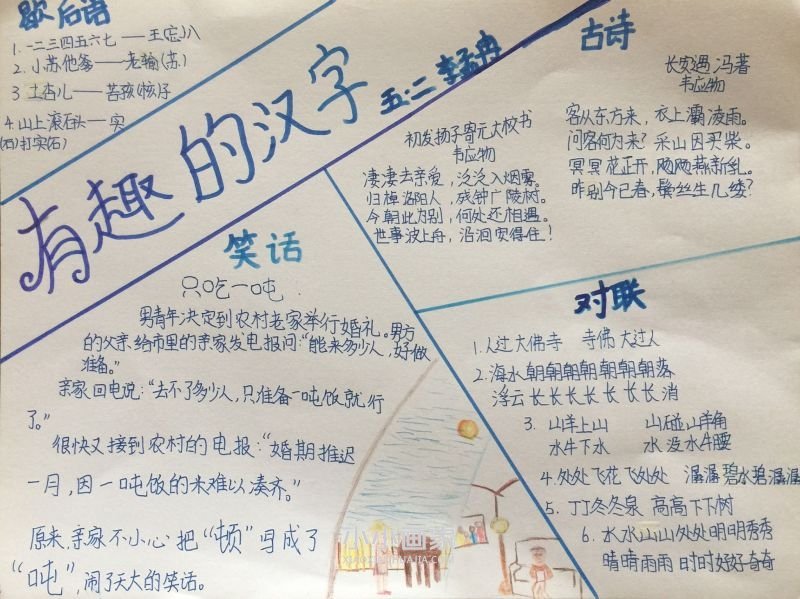 歇后语
1.一二三四五六七——王(忘)八
2.小苏他爹——老输(苏)
3 土杏儿——苦孩(核)子
4.山上滚石头——实
(石)打实(石)
有趣的汉字
五.二 李孟冉
古诗
长安遇冯著
韦应物
客从东方来，衣上灞凌雨。
问客何为来？采山因买柴。
冥冥花正开，飏飏燕新乱。
昨别今已春，鬓丝生几缕？
初发扬子寄元大校书
韦应物
凄凄去亲爱，泛泛入烟雾。
归棹洛阳人，残钟广陵树。
今朝此为别，何处还相遇。
世事波上舟，沿洄安得住！
笑话
只吃一吨
男青年决定到农村老家举行婚礼。男方
的父亲给市里的亲家发电报问:“能来多少人，好做
准备。”
亲家回电说：“去不了多少人，只准备一吨饭就行
了。”
很快又接到农村的电报：“婚期推迟
一月，因一吨饭的米难以凑齐。”
原来，亲家不小心把“顿”写成了
“吨”，闹了天大的笑话。
对联
1.人过大佛寺 寺佛大过人
2.海水朝朝朝朝朝朝朝落
浮云长长长长长长长消
3.山羊上山 山碰山羊角
水牛下水 水没水牛腰
4.处处飞花飞处处 潺潺碧水碧潺潺
5.丁丁冬冬泉 高高下下树
6.水水山山处处明明秀秀
晴晴雨雨时时好好奇奇